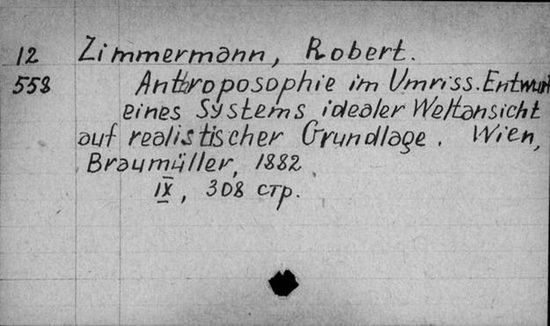 12 Zimmermann, Robert.
558 Anthroposophie im Umriss. Entwurf
eines Systems idealer Weltansicht
auf realistischer Grundlage. Wien,
Braumüller, 1882
IX, 308 стр.